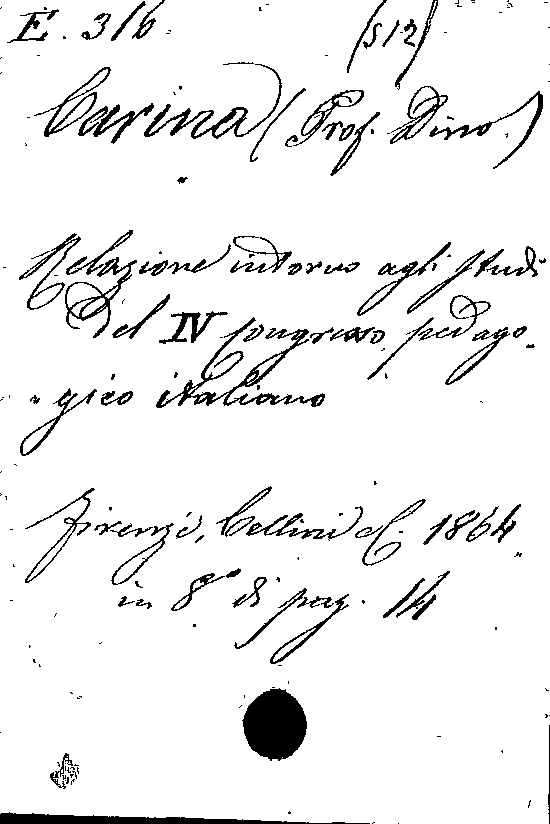 E. 316 (512)
Carina (Prof. Dino.)
Relazione intorno agli studi
del IV Congresso pedago-
-gico italiano
Firenze, Cellini e C. 1864
in 8º di pag. 14